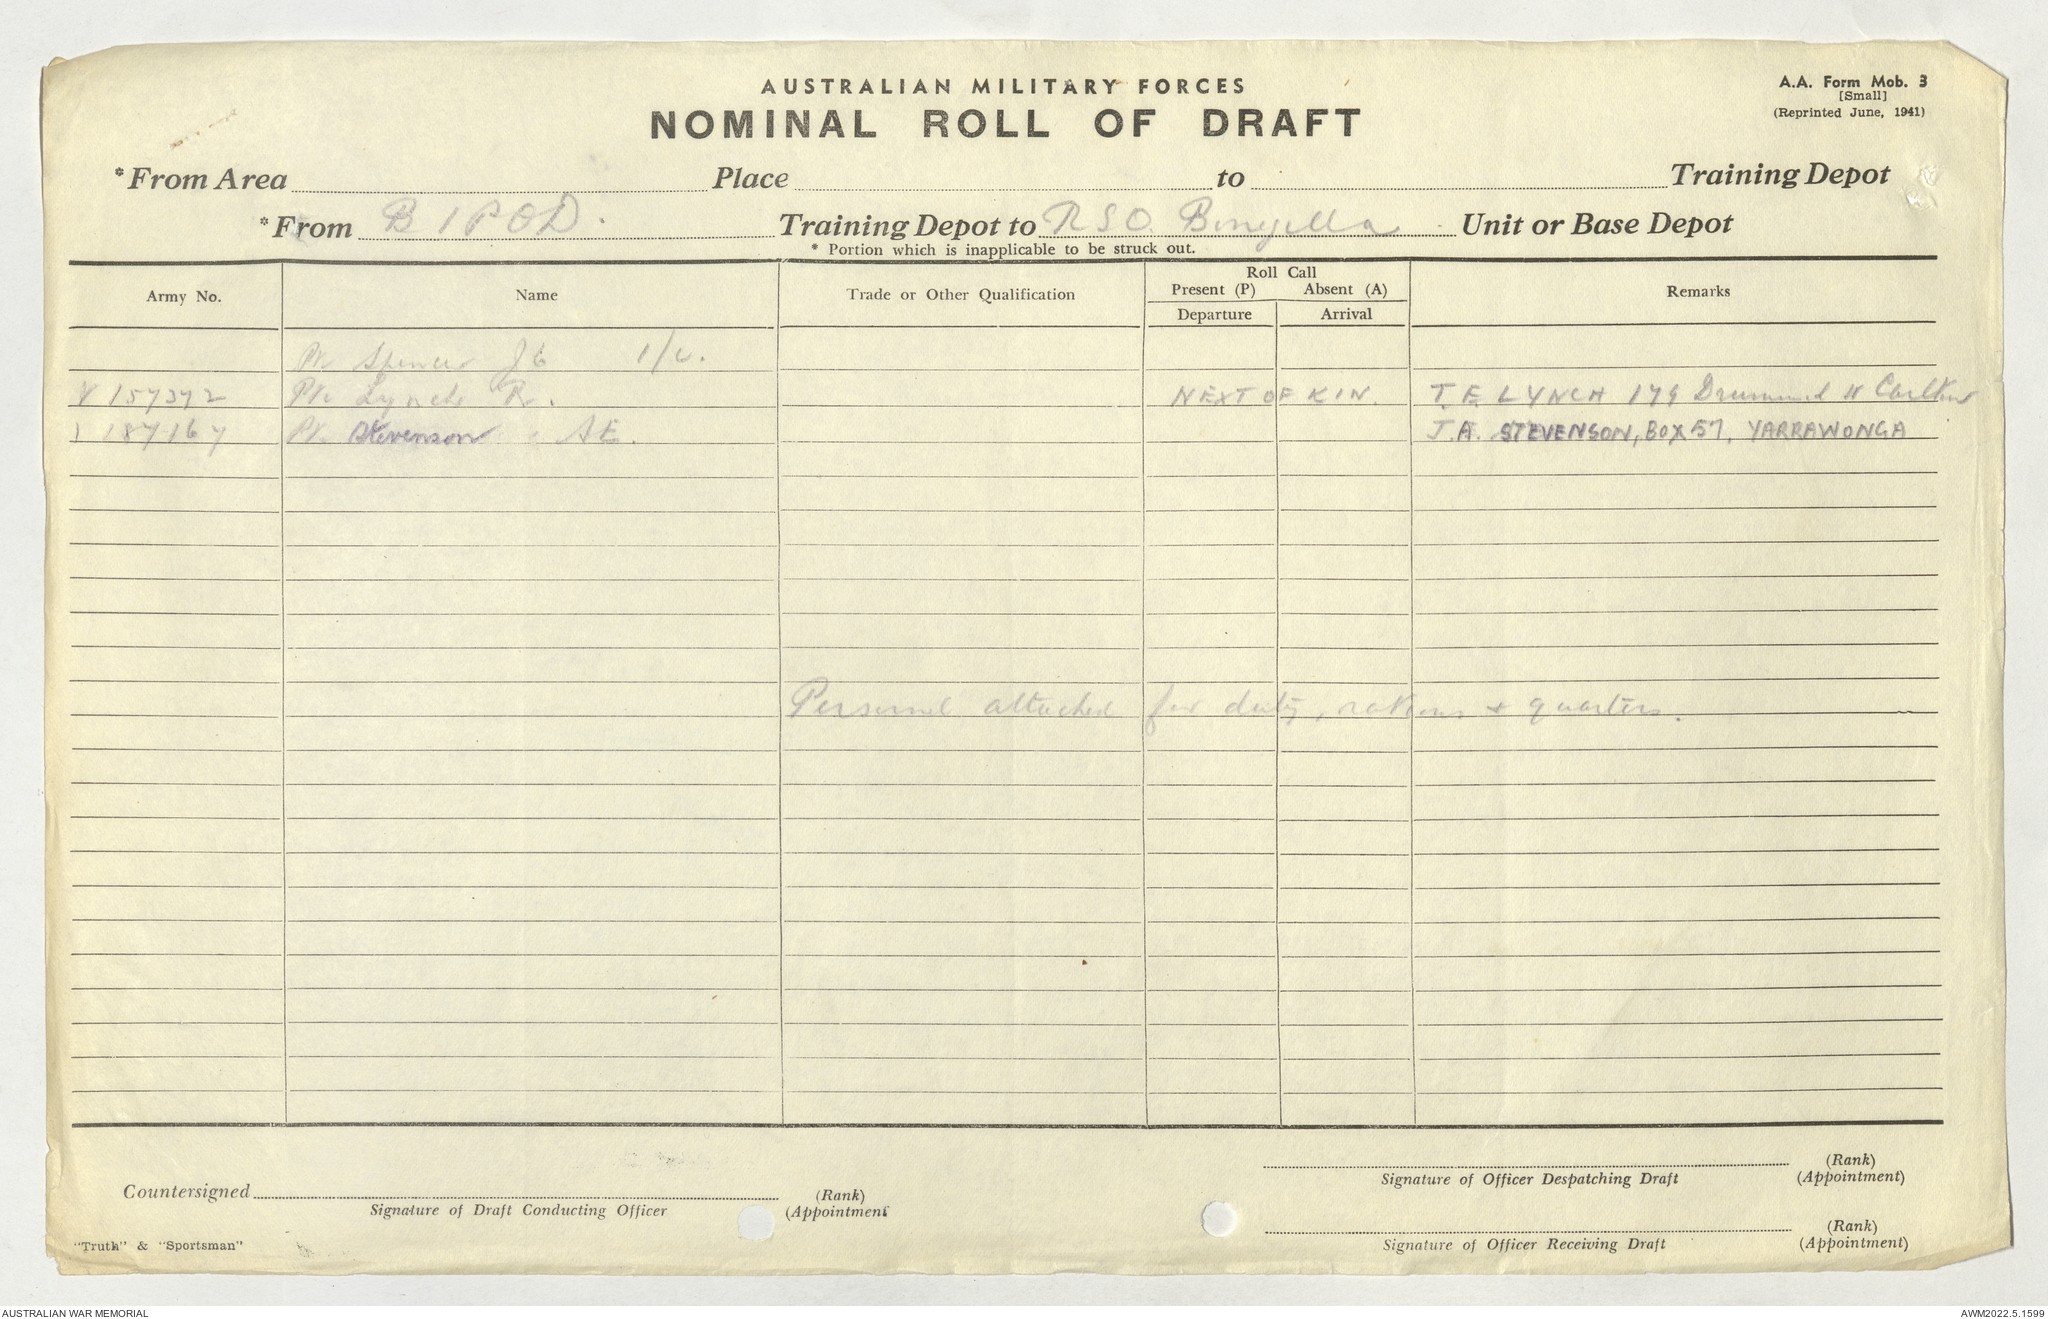 AUSTRALIAN MILITARY FORCES
NOMINAL ROLL OF DRAFT
A.A. Form Mob. 3
[Small]
(Reprinted June, 1941)
* From Area Place to Training Depot
* From B I P O D. Training Depot to R S O. Bonegilla Unit or Base Depot
* Portion which is inapplicable to be struck out.
Army No. Name Trade or Other Qualification Roll Call Remarks
Present (P) Absent (A)
Departure Arrival
Pte Spencer J E
V 157372 Pte Lynch R. NEXT OF KIN. T. E. LYNCH 179 Drummond St Carlton
187167 Pte Stevenson A E. J. A. STEVENSON, BOX 57, YARRAWONGA
Personnel attached for duty, rations & quarters.
Countersigned (Rank)
Signature of Draft Conducting Officer (Appointment
(Rank)
Signature of Officer Despatching Draft (Appointment)
(Rank)
Signature of Officer Receiving Draft (Appointment)
"Truth" & "Sportsman"
AUSTRALIAN WAR MEMORIAL AWM2022.5.1599